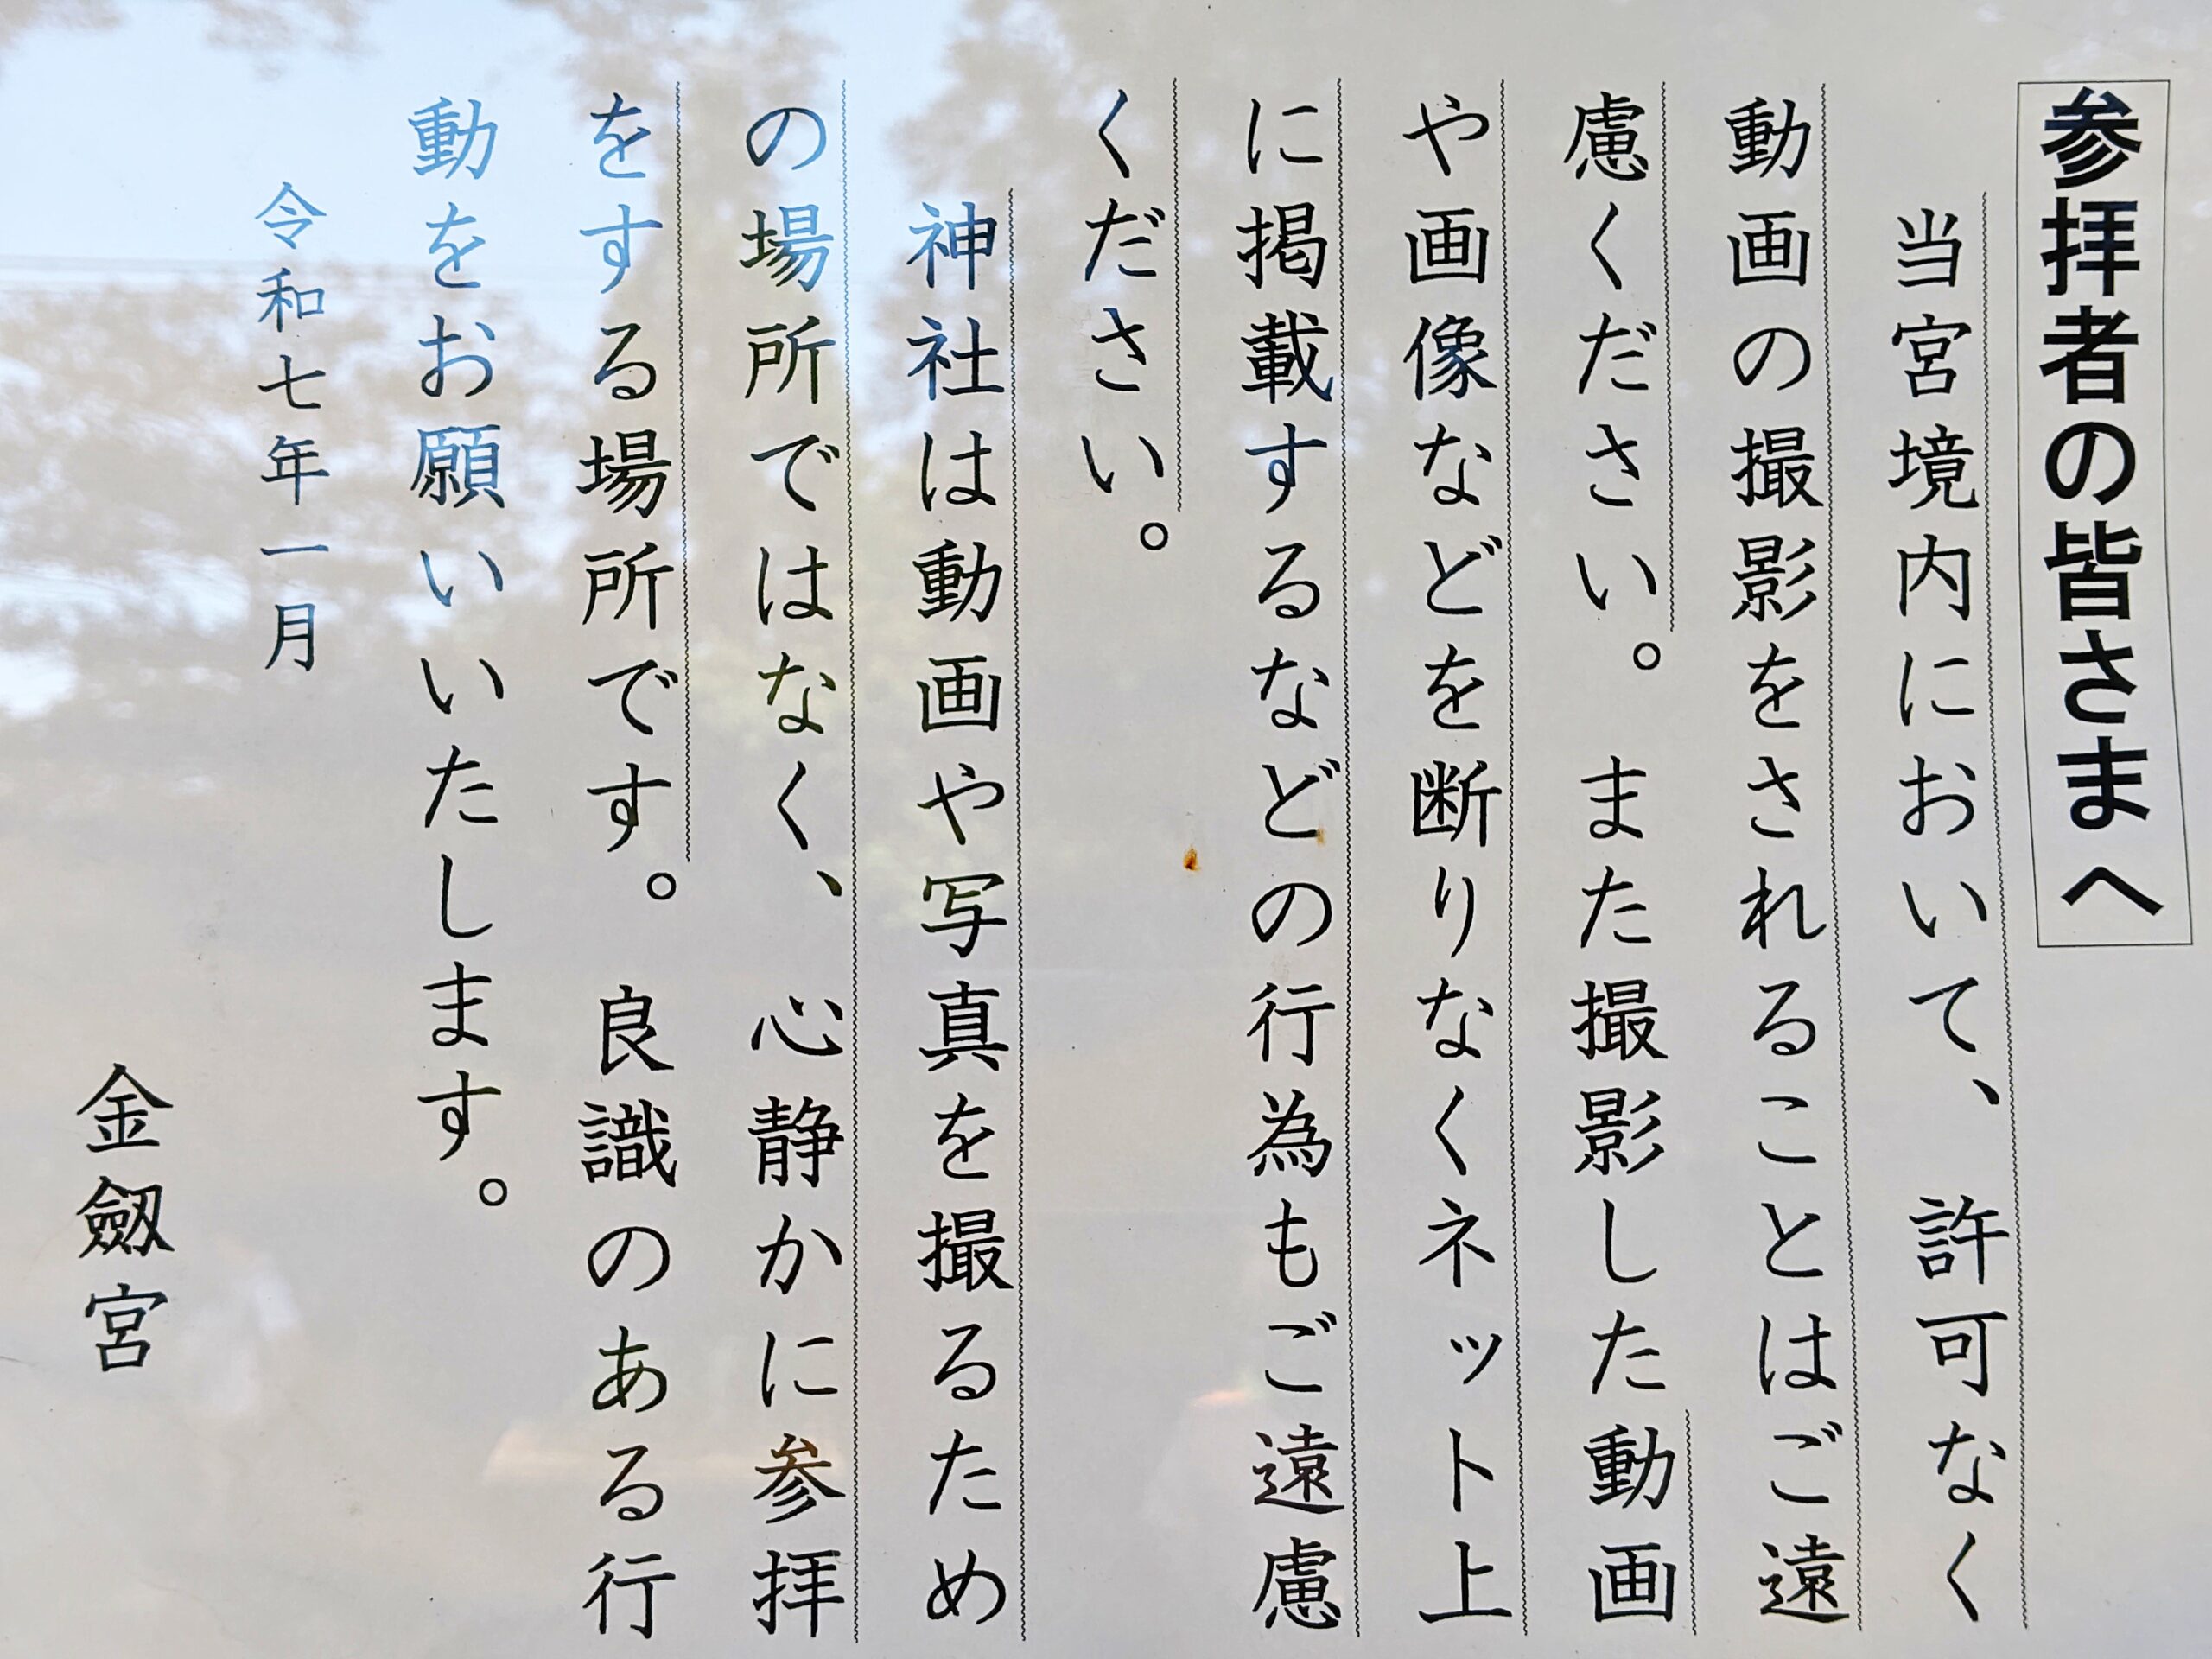 参拝者の皆さまへ
当宮境内において、許可なく
動画の撮影をされることはご遠
慮ください。また撮影した動画
や画像などを断りなくネット上
に掲載するなどの行為もご遠慮
ください。
神社は動画や写真を撮るため
の場所ではなく、心静かに参拝
をする場所です。良識のある行
動をお願いいたします。
令和七年一月
金劔宮